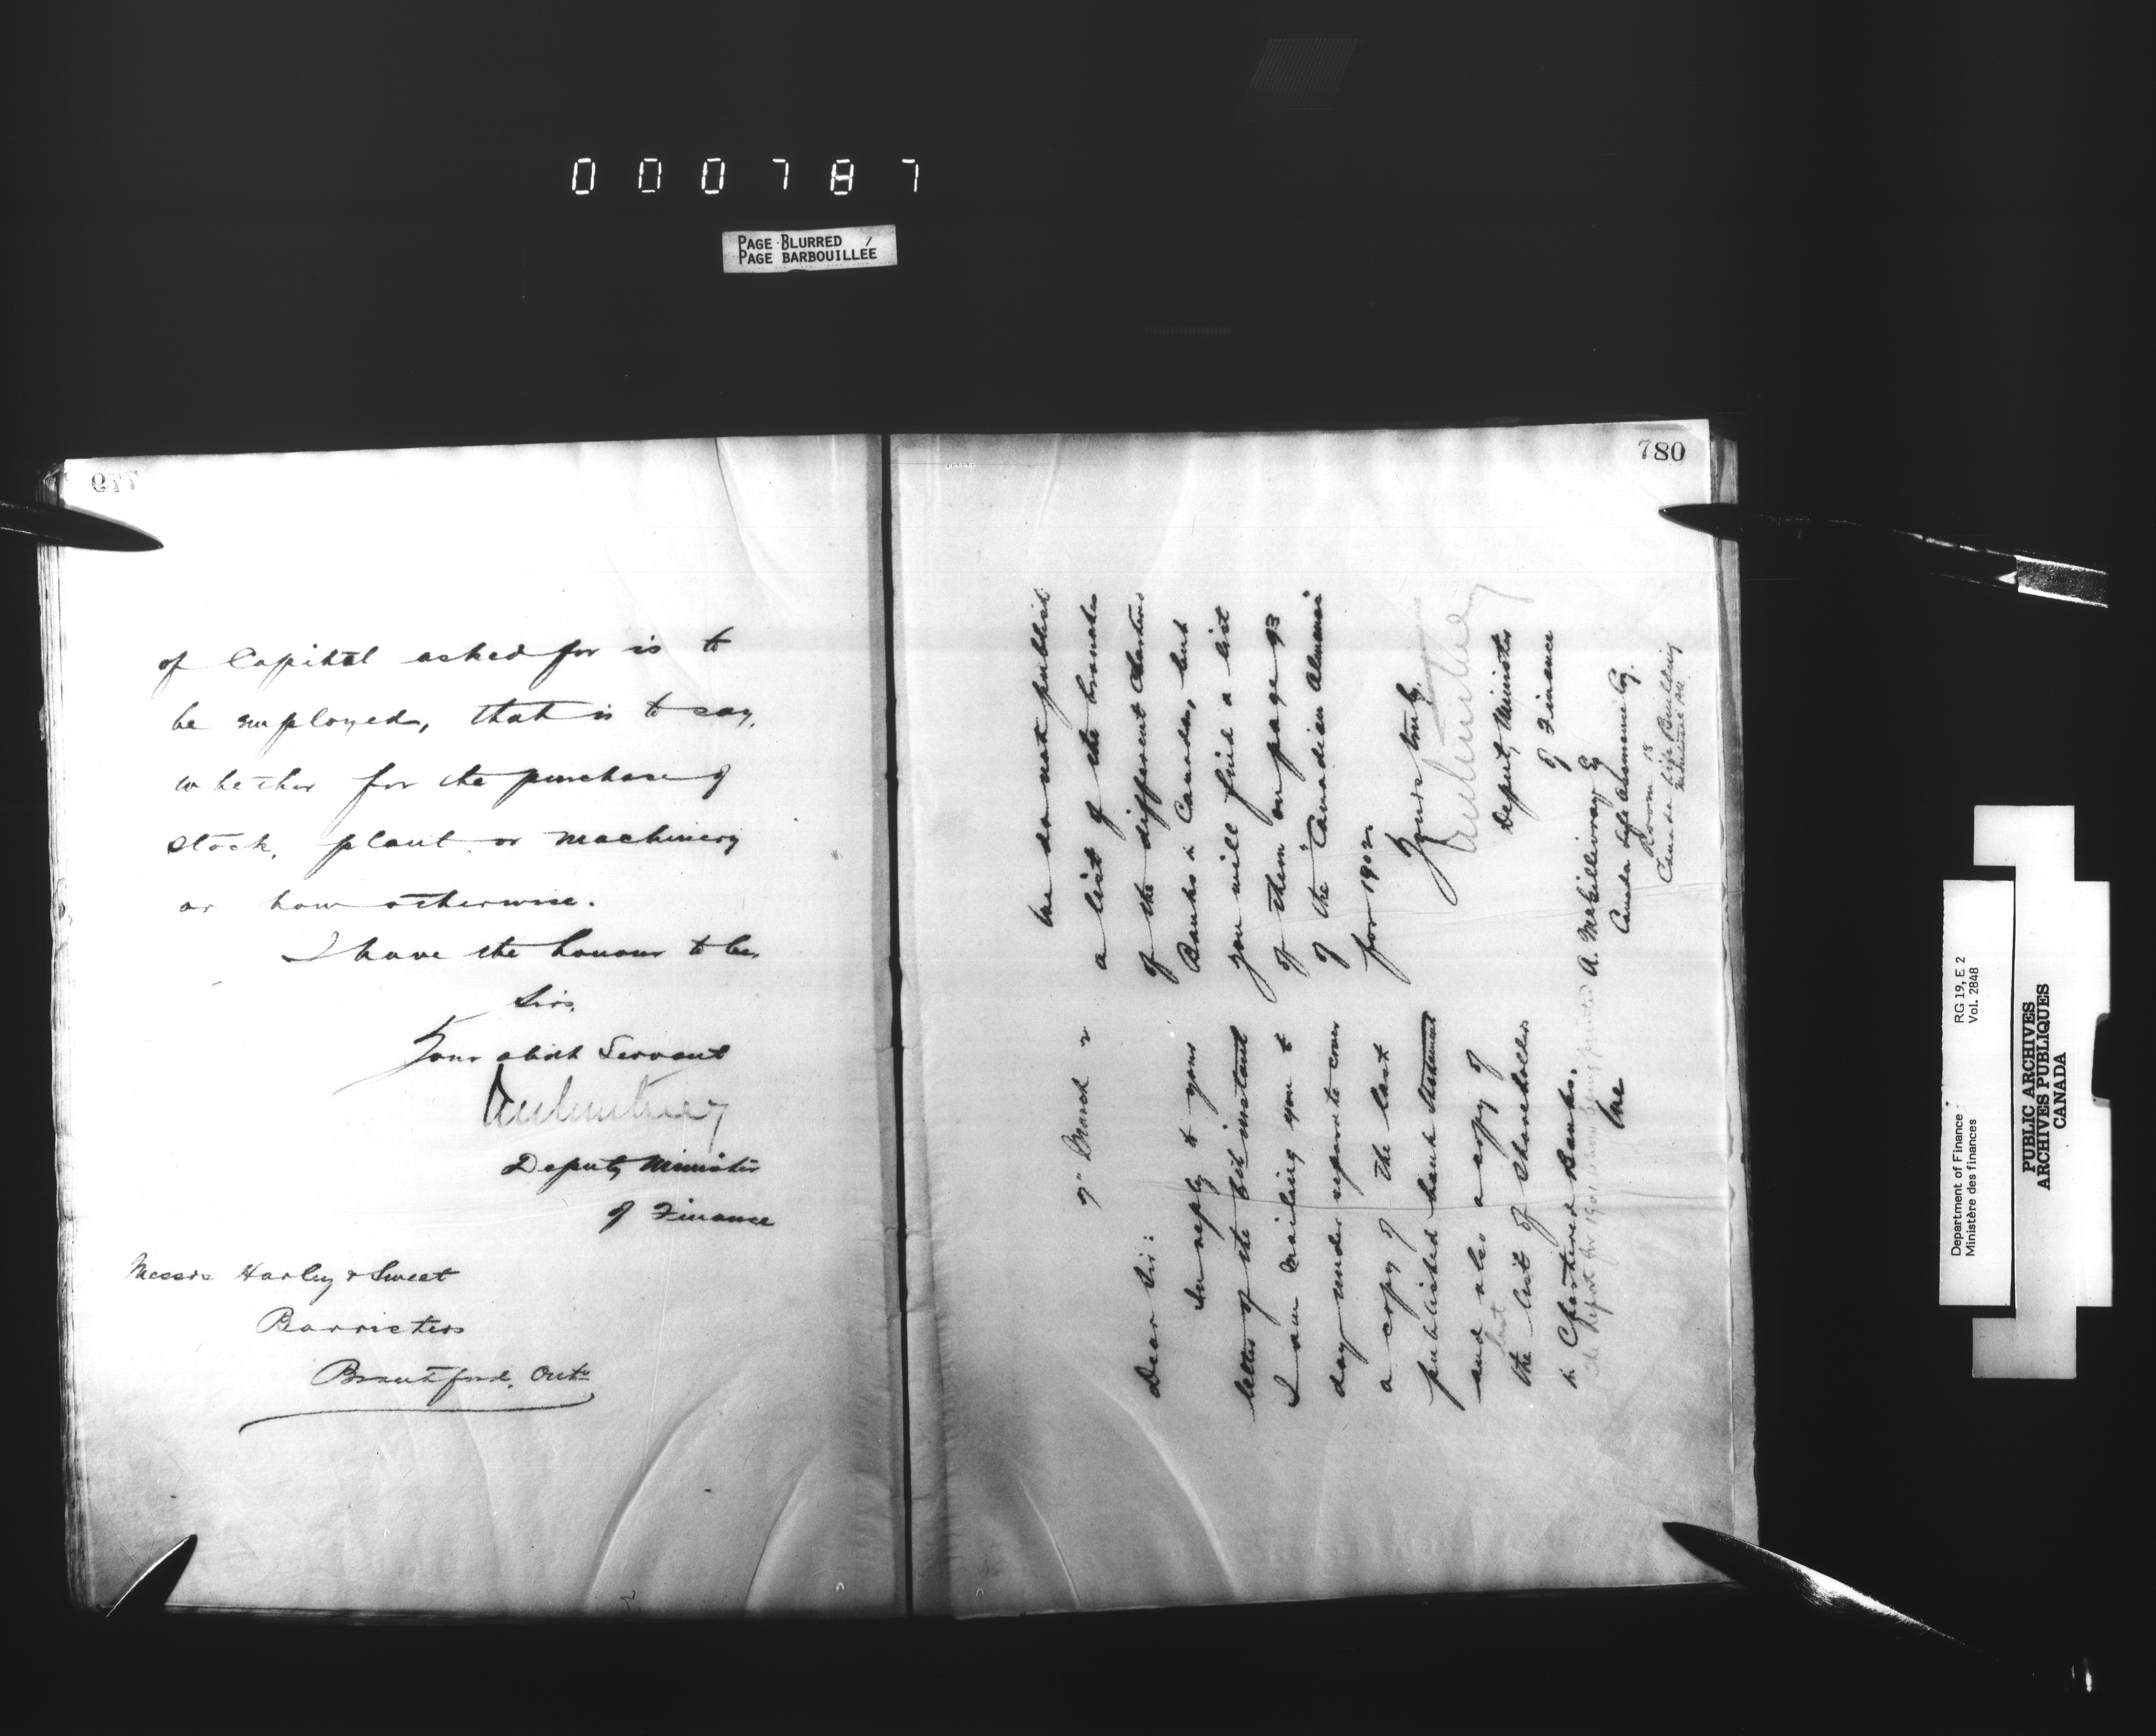 000787
PAGE BLURRED
PAGE BARBOUILLÉE
779
of Capital asked for is to
be employed, that is to say,
whether for the purchase of
stock, plant or machinery
or how otherwise.
I have the honour to be,
Sirs,
Your obdt Servant
Deputy Minister
of Finance
Messrs Harley & Sweet
Barristers
Brantford, Ont.
780
7" March 2
Dear Sir:
In reply to yours
letter of the 6th instant
I am mailing you to
day under separate cover
a copy of the last
published bank statement
and also a copy of
last
the list of shareholders
in Chartered Banks.
the Report for 1901 is now being printed
We
We do not publish
a list of the branches
of the different Chartered
Banks in Canada, but
you will find a list
of them on page 93
of the "Canadian Almanac"
for 1902.
Yours truly,
Deputy Minister
of Finance
A. McGillivray Esq
Canada Life Assurance Coy.
Room 18
Canada Life Building
Montreal
Department of Finance
Ministère des finances
RG 19, E 2
Vol. 2848
PUBLIC ARCHIVES
ARCHIVES PUBLIQUES
CANADA